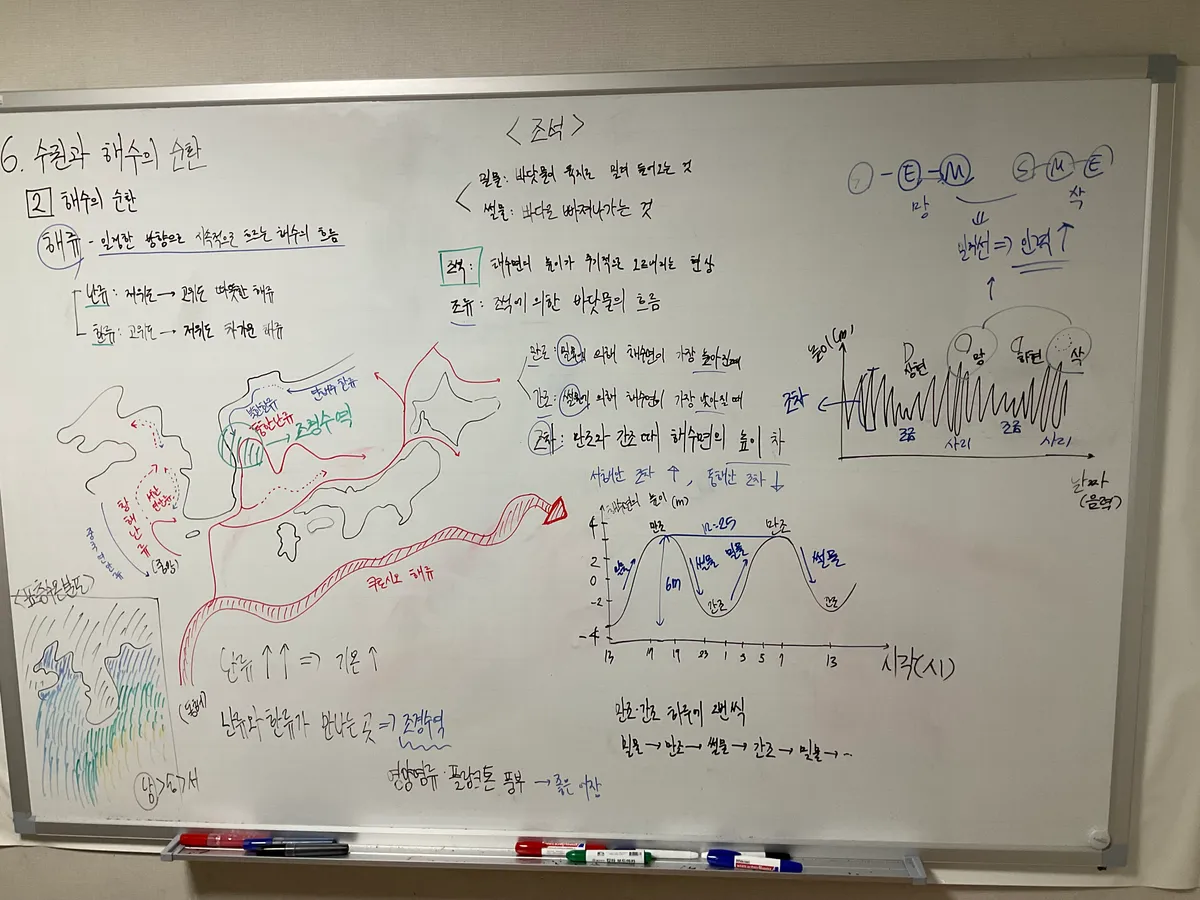 6. 수권과 해수의 순환
2 해수의 순환
해류 - 일정한 방향으로 지속적으로 흐르는 해수의 흐름
난류 : 저위도 → 고위도 따뜻한 해류
한류 : 고위도 → 저위도 차가운 해류
연해주 한류
북한한류
동한난류
→ 조경수역
황해난류
(황해)
쿠로시오 해류
<표층수온분포>
남>동>서
난류 ↑↑ => 기온 ↑
난류와 한류가 만나는 곳 => 조경수역
영양염류·플랑크톤 풍부 → 좋은 어장
<조석>
밀물 : 바닷물이 육지로 밀려 들어오는 것
썰물 : 바다로 빠져나가는 것
조석 : 해수면의 높이가 주기적으로 오르내리는 현상
조류 : 조석에 의한 바닷물의 흐름
만조 : 밀물에 의해 해수면이 가장 높아진 때
간조 : 썰물에 의해 해수면이 가장 낮아진 때
조차 : 만조와 간조 때 해수면의 높이 차
서해안 조차 ↑, 동해안 조차 ↓
해수면의 높이 (m)
4
2
0
-2
-4
만조 12:25 만조
밀물 썰물 밀물 썰물
6m
간조 간조
13 17 19 23 1 3 5 7 13
시각(시)
만조·간조 하루에 2번씩
밀물 → 만조 → 썰물 → 간조 → 밀물 → ··
E - M
망
S - M - E
삭
일직선 => 인력 ↑
높이(m)
상현 망 하현 삭
조차
조금 사리 조금 사리
날짜
(음력)